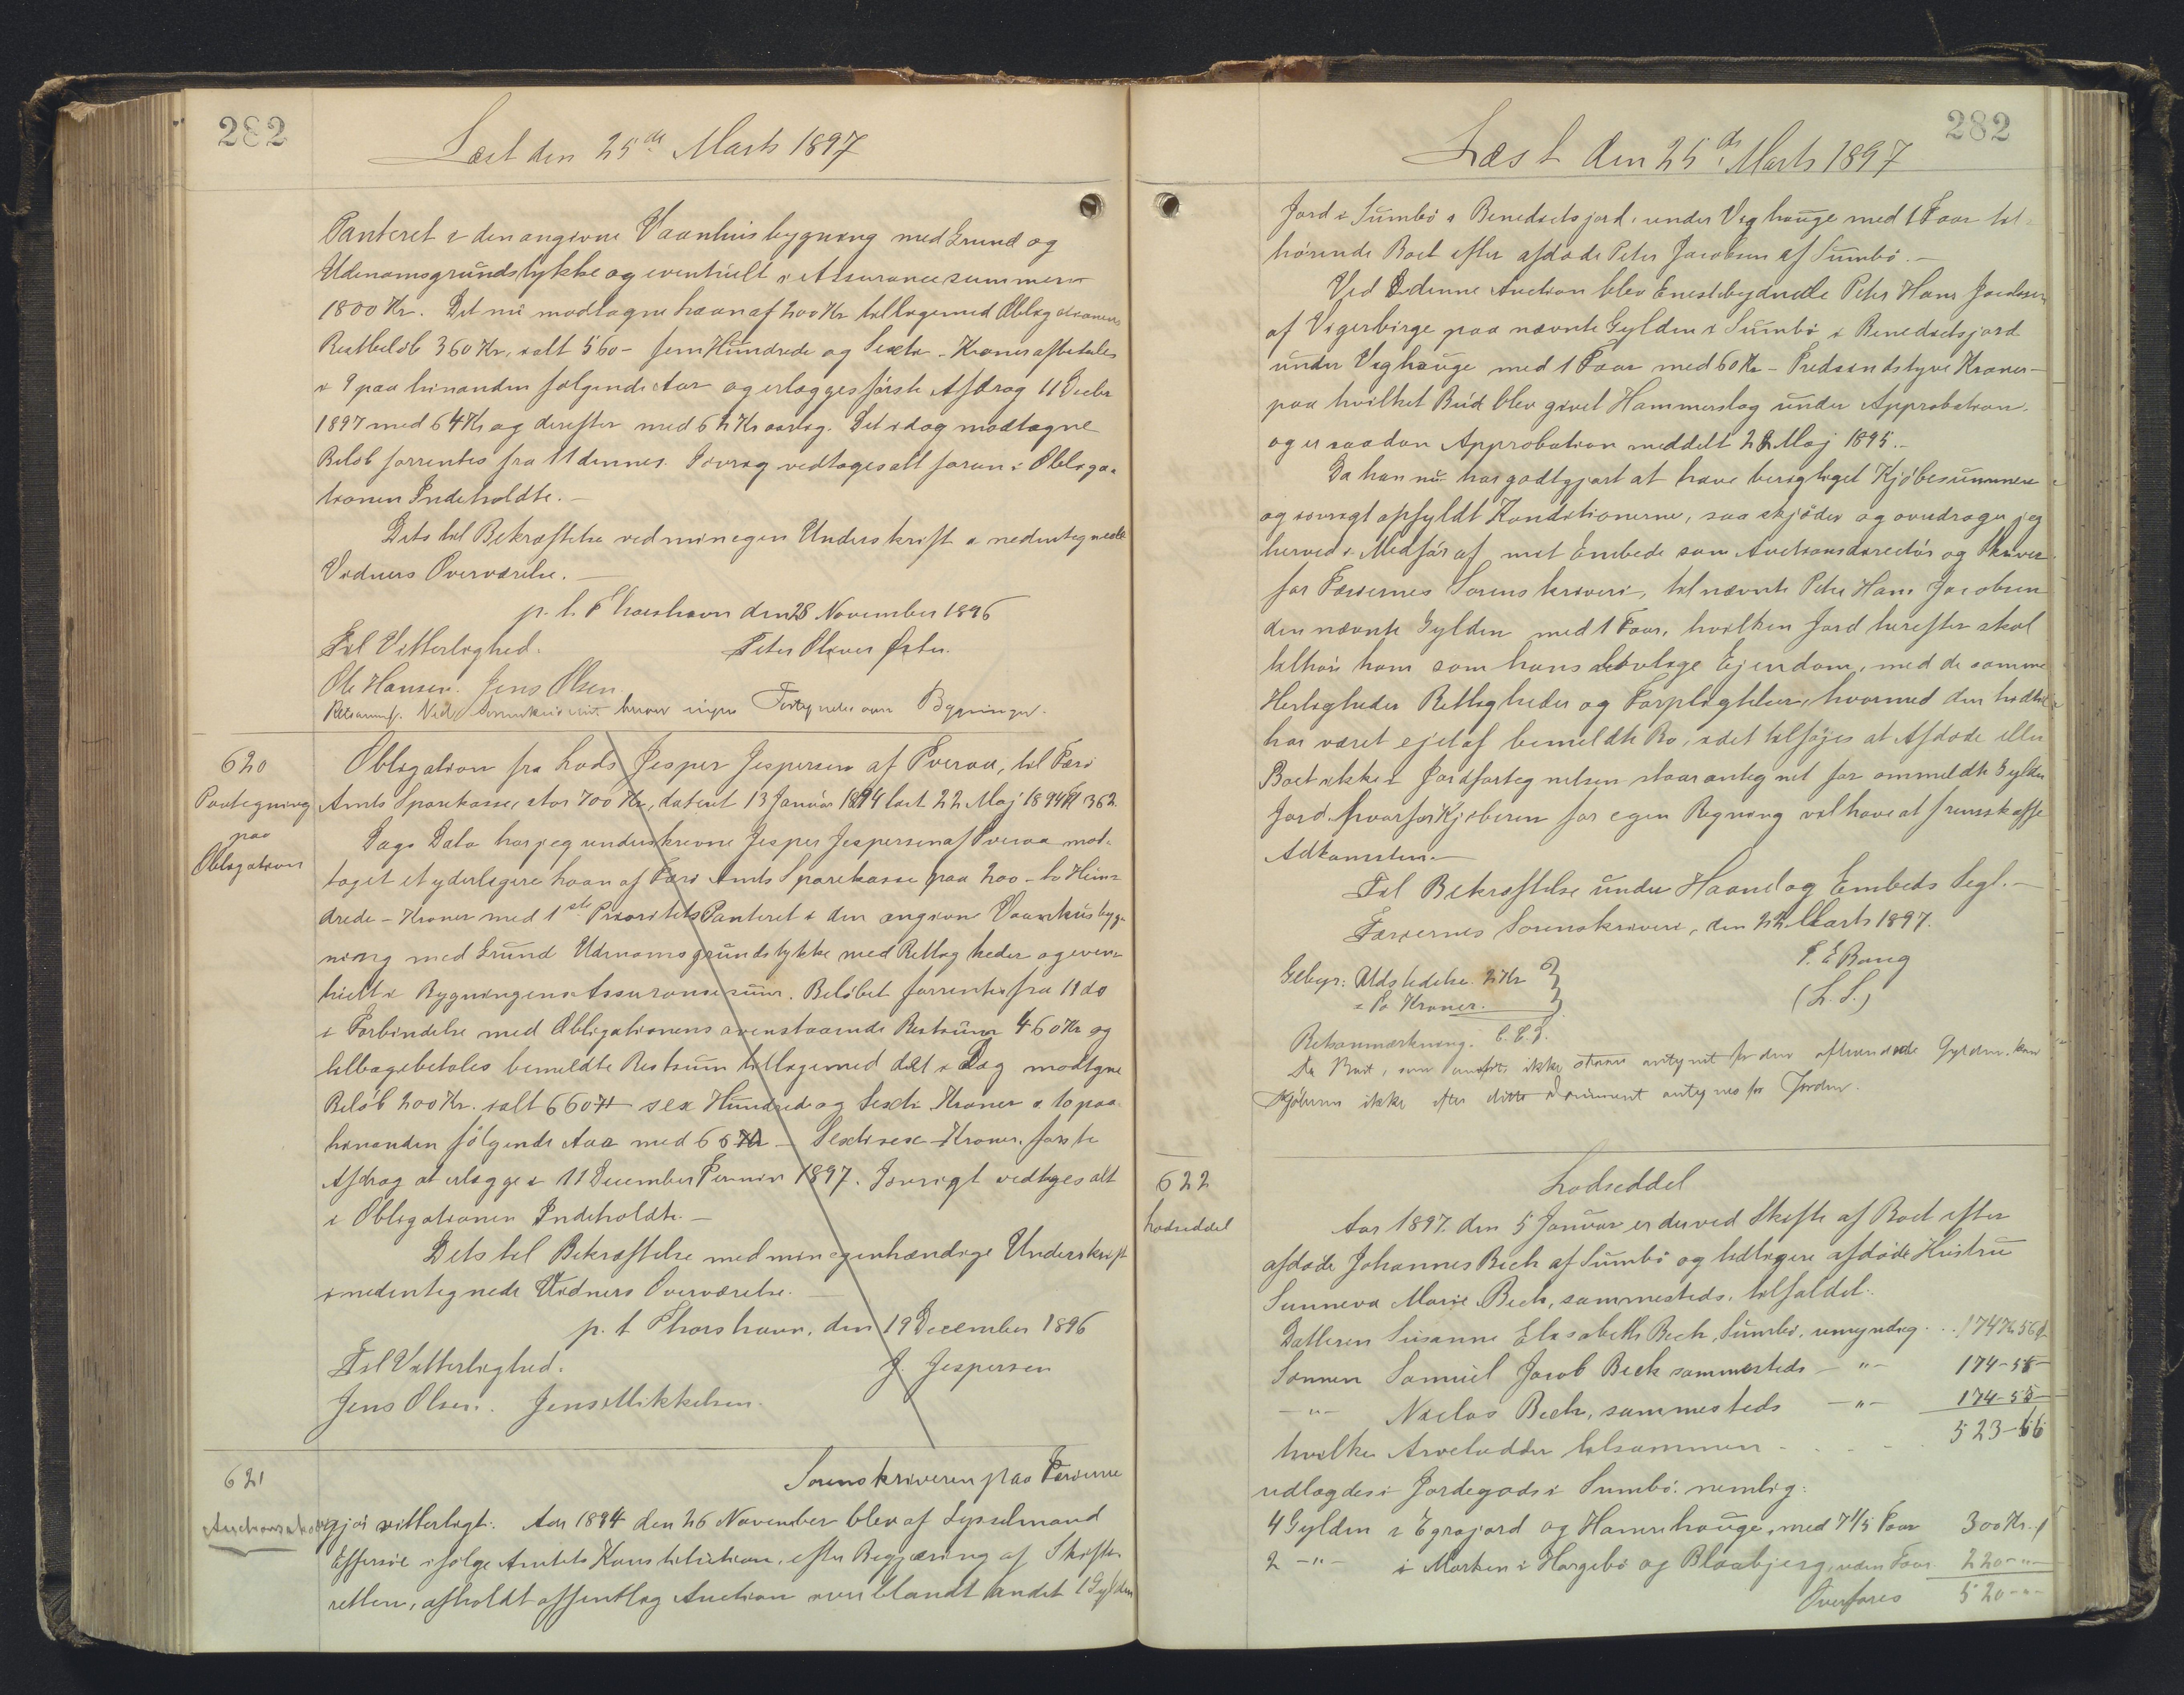 282
Læst den 25de Marts 1897
Panteret i den angivne Vaanhusbygning med Grund og
Udenomsgrundstykke og eventuelt i Assurancesummen
1800 Kr. Det nu modtagne Laan af 200 Kr tilligemed Obligationens
Restbeløb 360 Kr, ialt 560 - fem Hundrede og Sexti - Kroner afbetales
i 9 paa hinanden følgende Aar og erlægges første Afdrag 11 Decbr
1897 med 64 Kr og derefter med 62 Kr aarlig. Det idag modtagne
Beløb forrentes fra 11 dennes. Iøvrig vedtages alt foran i Obliga-
tionen Indeholdte.-
Dets til Bekræftelse ved min egen Underskrift i nedentegnede
Vidners Overværelse.-
p. t. Thorshavn den 28 November 1896
Til Vitterlighed. Peter Oliver Øster.
Ole Hansen. Jens Olsen.
Retsanm. Ved Sorenskriveriet beror ingen Fortegnelse over Bygninger.
620
Paategning
paa
Obligation
Obligation fra Lods Jesper Jespersen af Tveraa, til Færø
Amts Sparekasse, stor 700 Kr, dateret 13 Januar 1894 læst 22 Maj 1894 № 362.
Dags Dato har jeg underskrevne Jesper Jespersen af Tveraa mod-
taget et yderligere Laan af Færø Amts Sparekasse paa 200 - to Hun-
drede - Kroner med 1ste Prioritets Panteret i den angivne Vaanhusbyg-
ning med Grund Udenomsgrundstykke med Rettigheder og even-
tuelt i Bygningens Assurancesum. Beløbet forrentes fra 11 ds
i Forbindelse med Obligationens ovenstaaende Restsum 460 Kr og
tilbagebetales bemeldte Restsum tilligemed det i Dag modtagne
Beløb 200 Kr. ialt 660 Kr sex Hundrede og Sexti Kroner i 10 paa
hinanden følgende Aar med 66 Kr - Sextisex - Kroner, første
Afdrag at erlægge i 11 December Termin 1897. Iøvrigt vedtages alt
i Obligationen Indeholdte.-
Dets til Bekræftelse med min egenhændige Underskrift
i nedentegnede Vidners Overværelse.-
p. t Thorshavn, den 19 December 1896
Til Vitterlighed. J. Jespersen
Jens Olsen. Jens Mikkelsen.
621
Auctionsskjøde
Sorenskriveren paa Færøerne
gjør vitterligt: Aar 1894 den 26 November blev af Sysselmand
Effersøe ifølge Amtets Konstitution, efter Begjæring af Skifte-
retten, afholdt offentlig Auction over blandt andet 1 Gylden
282
Læst den 25de Marts 1897
Jord i Sumbø i Benedictsjord, under Vághauge med 1 Faar til-
hørende Boet efter afdøde Peter Jacobsen af Sumbø.-
Ved denne Auction blev Enestebydende Peter Hans Jacobsen
af Vigerbirge paa nævnte Gylden i Sumbø i Benedictsjord
under Vaghauge med 1 Faar med 60 Kr - Tredsindstyve Kroner -
paa hvilket Bud blev givet Hammerslag under Approbation.
og er saadan Approbation meddelt 22 Maj 1895.-
Da han nu har godtgjort at have berigtiget Kjøbesummen
og iøvrigt opfyldt Konditionerne, saa skjøder og overdrager jeg
herved i Medfør af mit Embede som Auctionsdirectør og Skriver
for Færøernes Sorenskriveri, til nævnte Peter Hans Jacobsen
den nævnte Gylden med 1 Faar, hvilken Jord herefter skal
tilhøre ham som hans lovlige Ejendom, med de samme
Herligheder Rettigheder og Forpligtelser, hvormed den hidtil
har været ejet af bemeldte Bo, idet tilføjes at Afdøde eller
Boet ikke i Jordfortegnelsen staar antegnet for ommeldte Gylden
Jord. hvorfor Kjøberen for egen Regning vil have at fremskaffe
Adkomsten.-
Til Bekræftelse under Haand og Embeds Segl.-
Færøernes Sorenskriveri, den 22 Marts 1897.
Gebyr: Udstedelse 2 Kr P. E Bang
= To Kroner. (L. S.)
Retsanmærkning.
Da Boet, som anført, ikke staar antegnet for den afhændede Gylden, kan
Kjøberen ikke efter dette Document antegnes for Jorden.
622
Lodseddel
Lodseddel
Aar 1897 den 5 Januar er derved Skifte af Boet efter
afdøde Johannes Beck af Sumbø og tidligere afdøde Hustru
Sunneva Marie Beck, sammesteds. tilfaldet:
Datteren Susanne Elisabeth Beck, Sumbø, umyndig .. 174 Kr 56 ø
Sønnen Samuel Jacob Beck sammesteds - " - 174-55-
- " - Niclas Beck, sammesteds - " - 174-55
hvilke Arvelodder tilsammen - - - 523-66
udlagdes i Jordegods i Sumbø: nemlig:
4 Gylden i Egrajord og Hamrehauge, med 7 1/5 Faar 300 Kr.
2 - " - i Marken i Horgebø og Blaabjerg, uden Faar 220 - " -
Overføres 520 - " -